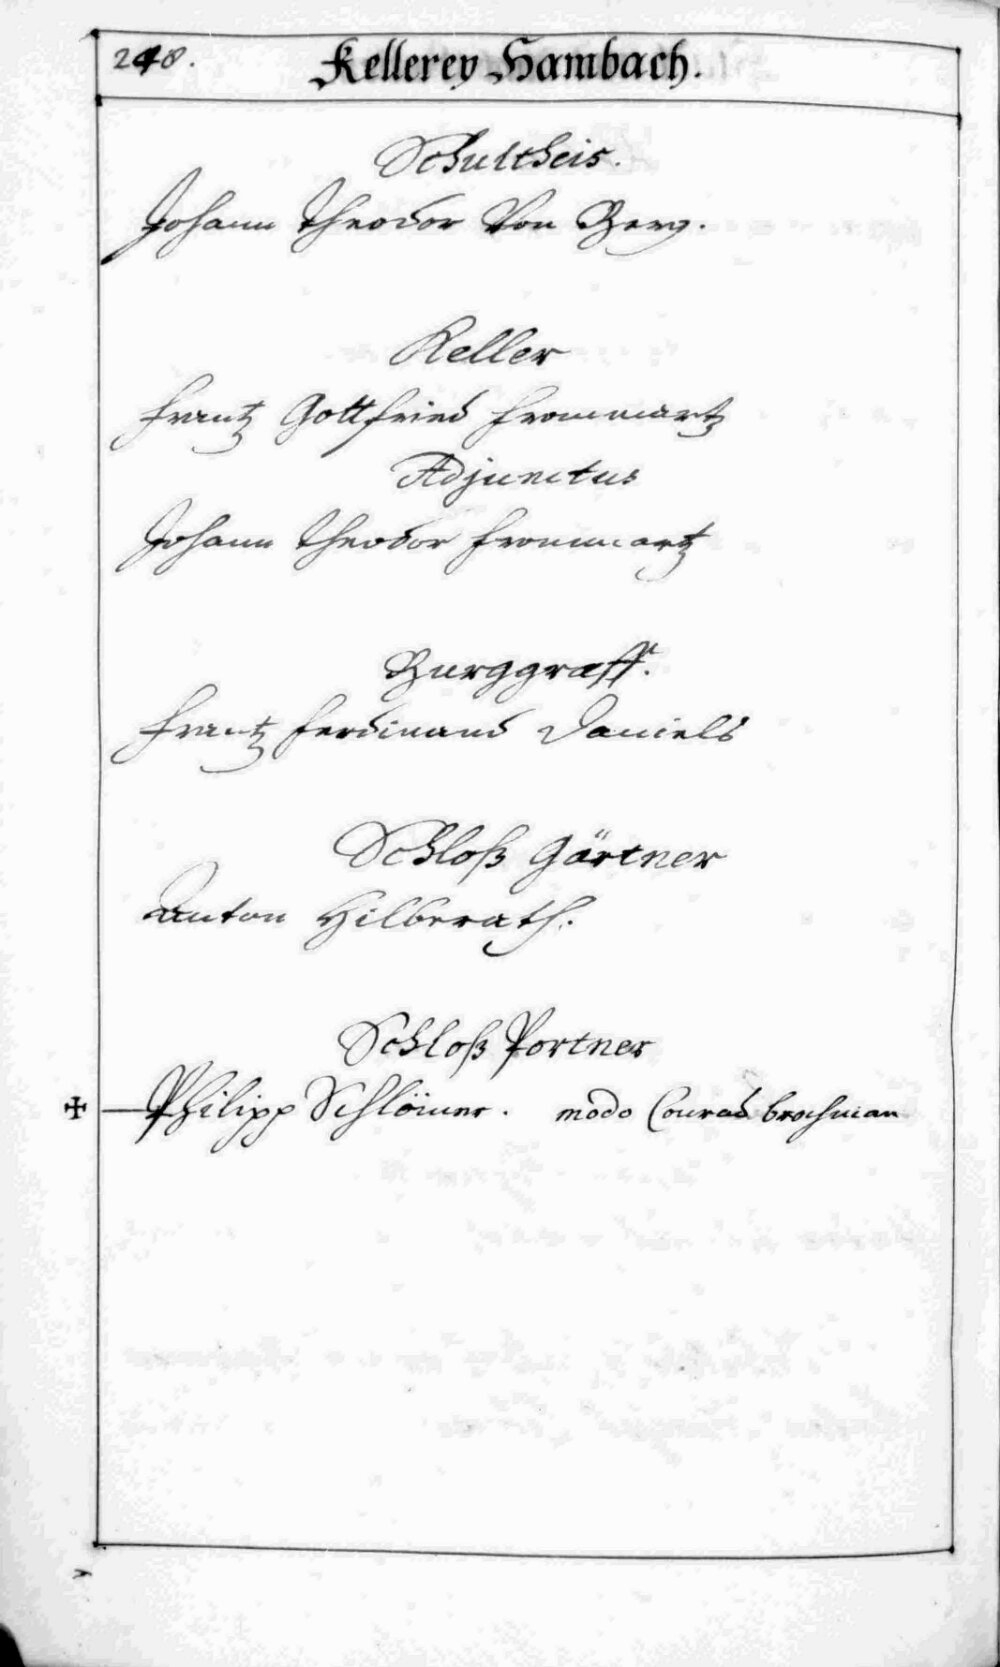 248.
Kellerey Hambach.
Schultheis.
Johann Theodor Von Berg.
Keller
Frantz Gottfried Frommartz
Adjunctus
Johann Theodor Frommartz
Burggraff.
Frantz Ferdinand Daniels
Schloß Gärtner
Anton Hilberath.
Schloß Portner
✠ Philipp Schlömer. modo Conrad brochman